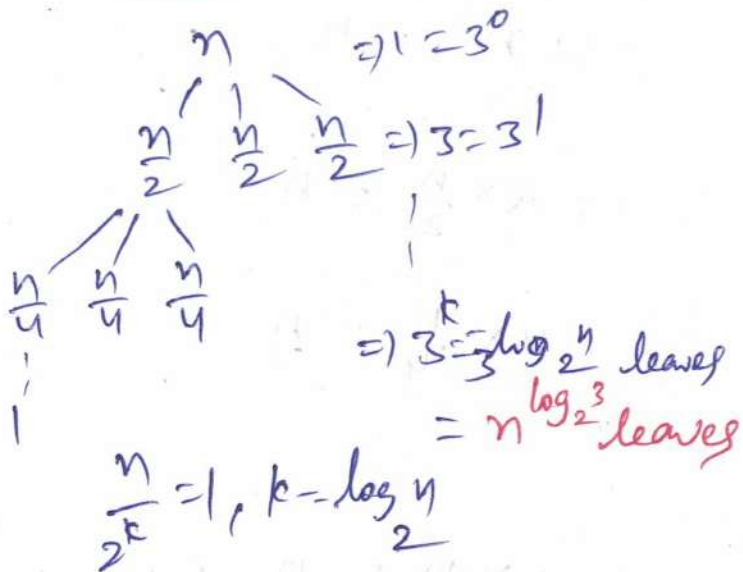 n ⇒ 1 = 3^0
n/2 n/2 n/2 ⇒ 3 = 3^1
n/4 n/4 n/4
⇒ 3^k = 3^log_2 n leaves
1
= n^log_2 3 leaves
n/2^k = 1, k = log_2 n